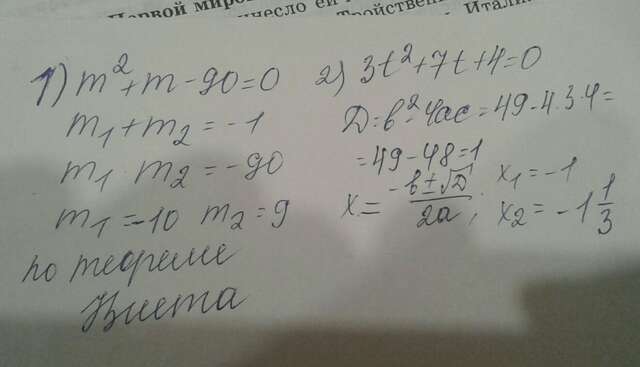 Первой
Тройственн
Итали
1) m²+m-90=0
m₁+m₂=-1
m₁ m₂=-90
m₁=-10 m₂=9
по теореме
Виета
2) 3t²+7t+4=0
D=b²-4ac=49-4·3·4=
=49-48=1
x=(-b±√D)/2a; x₁=-1
x₂=-1 1/3